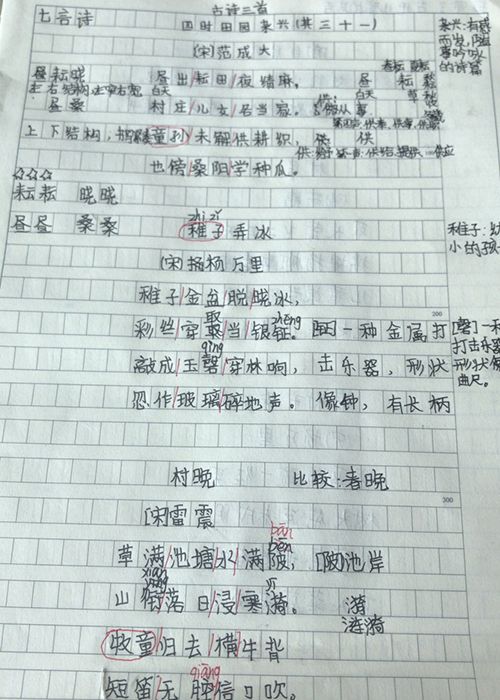 古诗三首
七言诗 四时田园杂兴(共三十一)
[宋]范成大
杂兴:有感
而发,随
事吟咏
的诗篇
昼耘晓 昼出耘田夜绩麻。 昼 耘
左右结构
白天
昼桑 村庄儿女各当家。
白天
上下结构, 童孙未解供耕织, 供 供
也傍桑阴学种瓜。
☆☆☆
耘耘 晓晓
昼昼 桑桑
zhì zǐ
稚子弄冰
[宋]杨万里
稚子:幼
小的孩
稚子金盆脱晓冰,
彩丝穿取当银钲。 一种金属打
zhēng
敲成玉磬穿林响, 击乐器,形状
qìng
忽作玻璃碎地声。 像钟,有长柄
[磬]一种
打击乐器
形状像
曲尺。
200
村晚 比较:春晚
300
[宋]雷震
草满池塘水满陂, [陂]池岸
bēi
山衔落日浸寒漪。 漪
yī
涟漪
牧童归去横牛背
短笛无腔信口吹。
qiāng